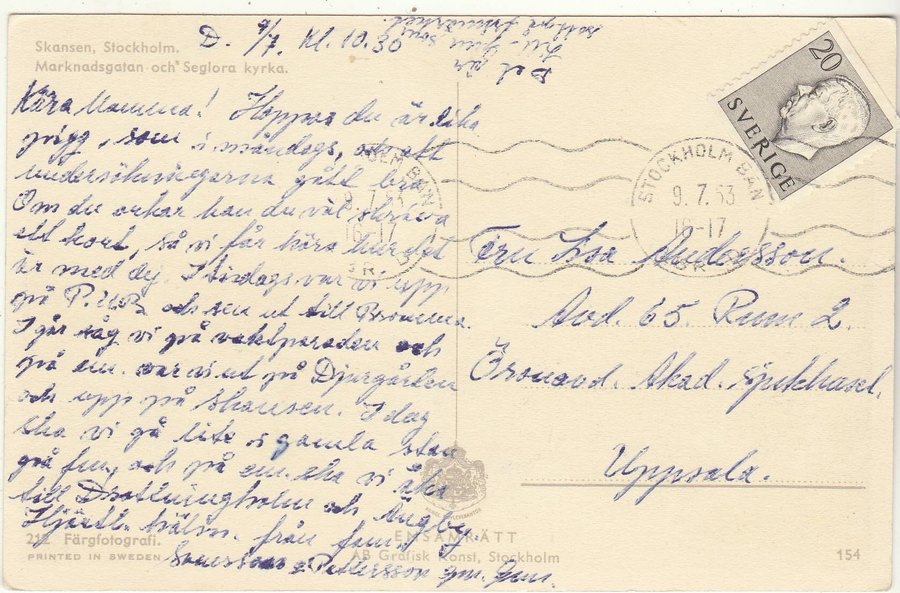 Skansen, Stockholm.
Marknadsgatan och Seglora kyrka.
D. 9/7. Kl. 10.30
Det är
som
frimärket.
Kära Mamma! Hoppas du är lika
pigg, som i måndags, och att
undersökningarna gått bra.
Om du orkar kan du väl skriva
ett kort, så vi får höra hur det
är med dej. I tisdags var vi upp
på P.U.B. och sen ut till Bromma.
I går såg vi på vaktparaden och
på em. var vi ut på Djurgården
och upp på skansen. I dag
ska vi gå lite i gamla stan
på fm, och på em. ska vi åka
till Drottningholm och Ängby.
Hjärtl. hälsn. från fam.
Svensson o Pettersson gm.
212 Färgfotografi.
PRINTED IN SWEDEN
ENSAMRÄTT
AB Grafisk Konst, Stockholm
154
20
SVERIGE
STOCKHOLM BAN
9.7.53
16-17
Fru Andersson.
Avd. 65. Rum 2.
Öronavd. Akad. Sjukhuset.
Uppsala.